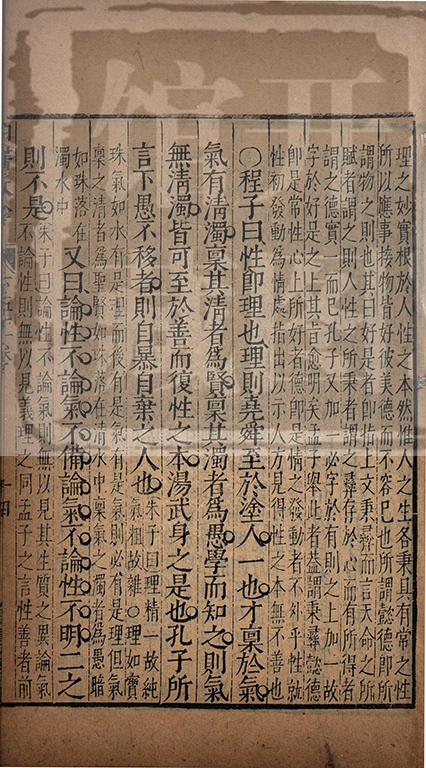 理之妙實根於人性之本然惟人之生各秉其有常之性
所以應事接物皆好彼美德而不容已也所謂懿德即所
謂物之則也其曰好是者即指上文秉彝而言天命之所
賦者謂之則人性之所秉者謂之彝存於心而有所得者
謂之德實一而已孔子又加一必字於有則之上加一故
字於好是之上其旨愈明矣孟子舉此者蓋謂秉彝懿德
即是常性心上所好者德即是情之發動者不外乎性就
性初發動為情處指出以示人方見得性之本無不善也
○程子曰性即理也理則堯舜至於塗人一也才稟於氣
氣有清濁稟其清者為賢稟其濁者為愚學而知之則氣
無清濁皆可至於善而復性之本湯武身之是也孔子所
言下愚不移者則自暴自棄之人也朱子曰理精一故純
氣粗故雜○理如寶
珠氣如水有是理而後有是氣有是氣則必有是理但氣
稟之清者為聖賢如珠落在清水中稟氣之濁者為愚暗
如珠落在
濁水中
又曰論性不論氣不備論氣不論性不明二之
則不是朱子曰論性不論氣則無以見其生質之異論氣
不論性則無以見義理之同孟子之言性善者前
十四